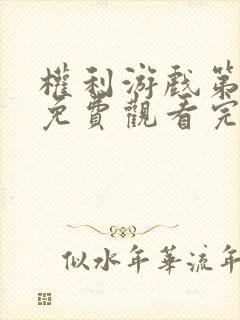 權利游戲第
免費觀看完
似水年華流年